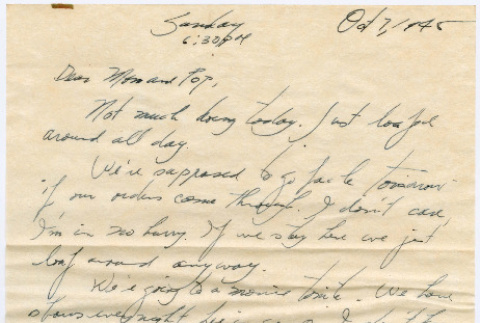 Sunday
6:30PM
Oct 7, 1945
Dear Mom and Pop,
Not much doing today. Just loafed
around all day.
We're supposed to go back tomorrow
if our orders come through. I don't care,
I'm in no hurry. If we stay here we just
loaf around anyway.
We're going to a movie tonite. We have
shows every night here